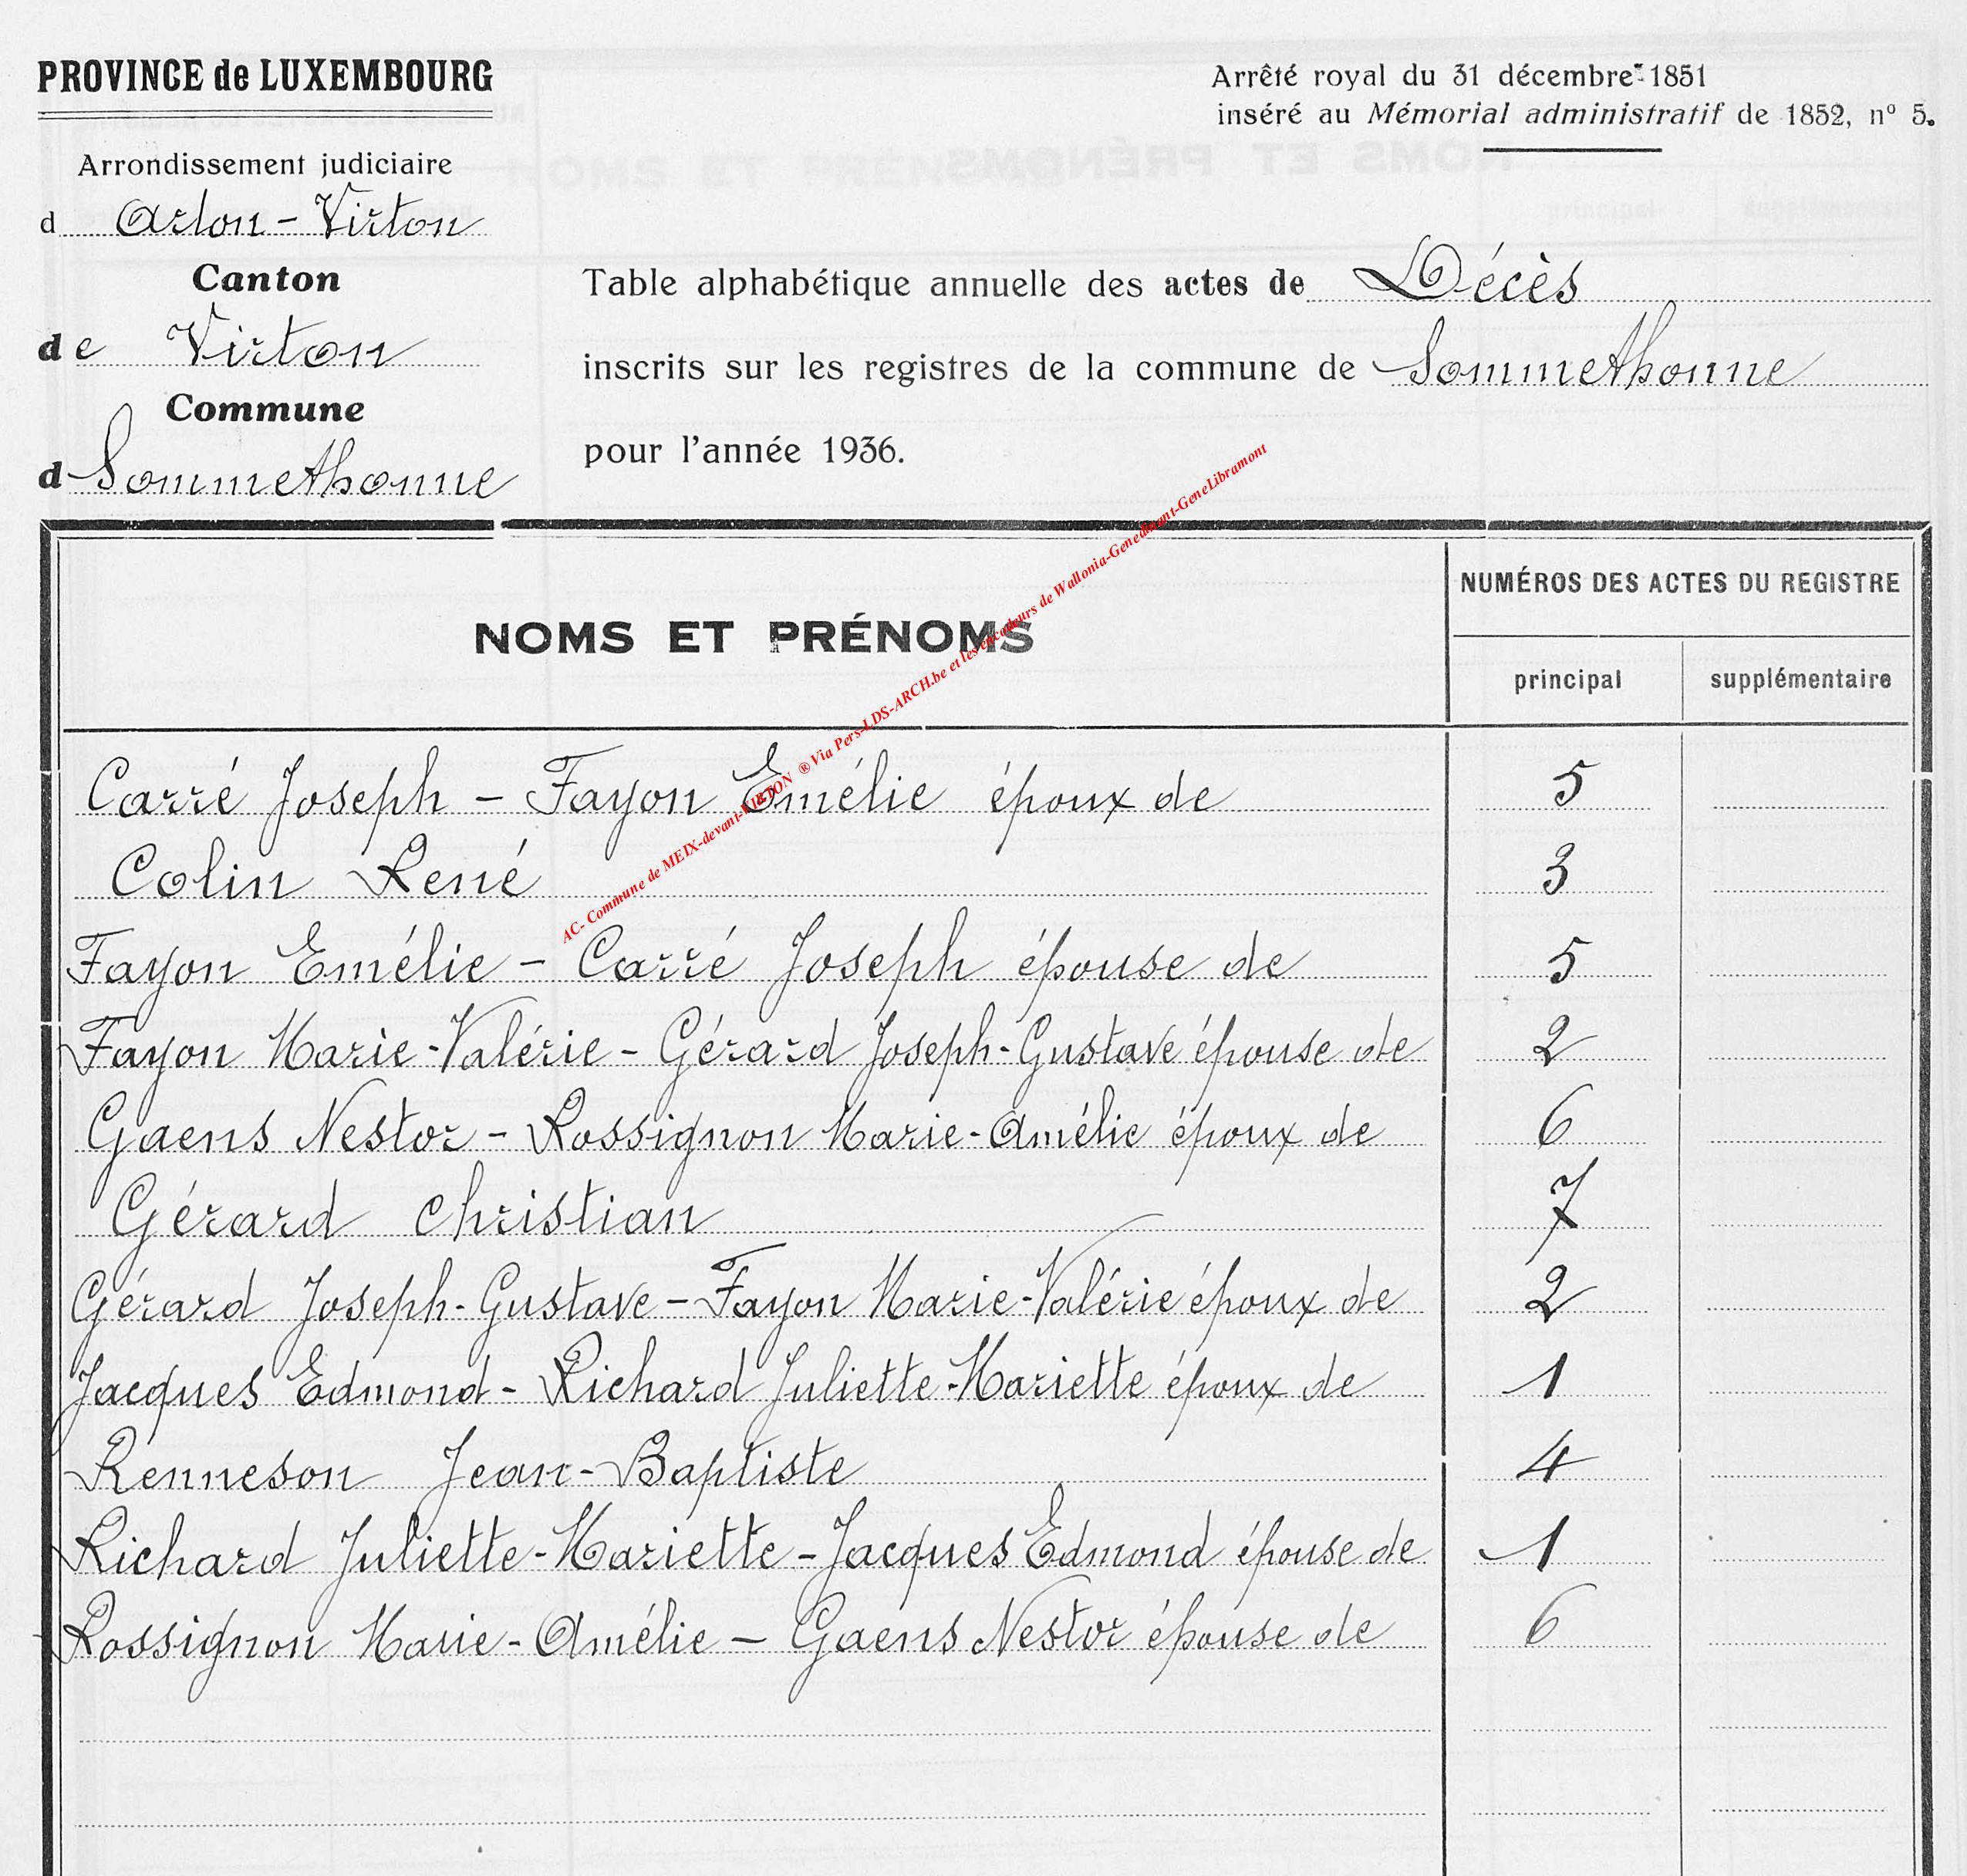 PROVINCE de LUXEMBOURG
Arrêté royal du 31 décembre 1851
inséré au Mémorial administratif de 1852, nº 5.
Arrondissement judiciaire
d Arlon - Virton
Canton
de Virton
Commune
d Sommethonne
Table alphabétique annuelle des actes de Décès
inscrits sur les registres de la commune de Sommethonne
pour l'année 1936.
NOMS ET PRÉNOMS
NUMÉROS DES ACTES DU REGISTRE
principal supplémentaire
Carré Joseph - Fayon Emélie époux de 5
Colin René 3
Fayon Emélie - Carré Joseph épouse de 5
Fayon Marie-Valérie - Gérard Joseph-Gustave épouse de 2
Gaens Nestor - Rossignon Marie-Amélie époux de 6
Gérard Christian 7
Gérard Joseph-Gustave - Fayon Marie-Valérie époux de 2
Jacques Edmond - Richard Juliette-Mariette époux de 1
Renneson Jean-Baptiste 4
Richard Juliette-Mariette - Jacques Edmond épouse de 1
Rossignon Marie-Amélie - Gaens Nestor épouse de 6
AC- Commune de MEIX-devant-VIRTON ® Via Pers-LDS-ARCH.be et les encodeurs de Wallonia-Genedinant-GeneLibramont